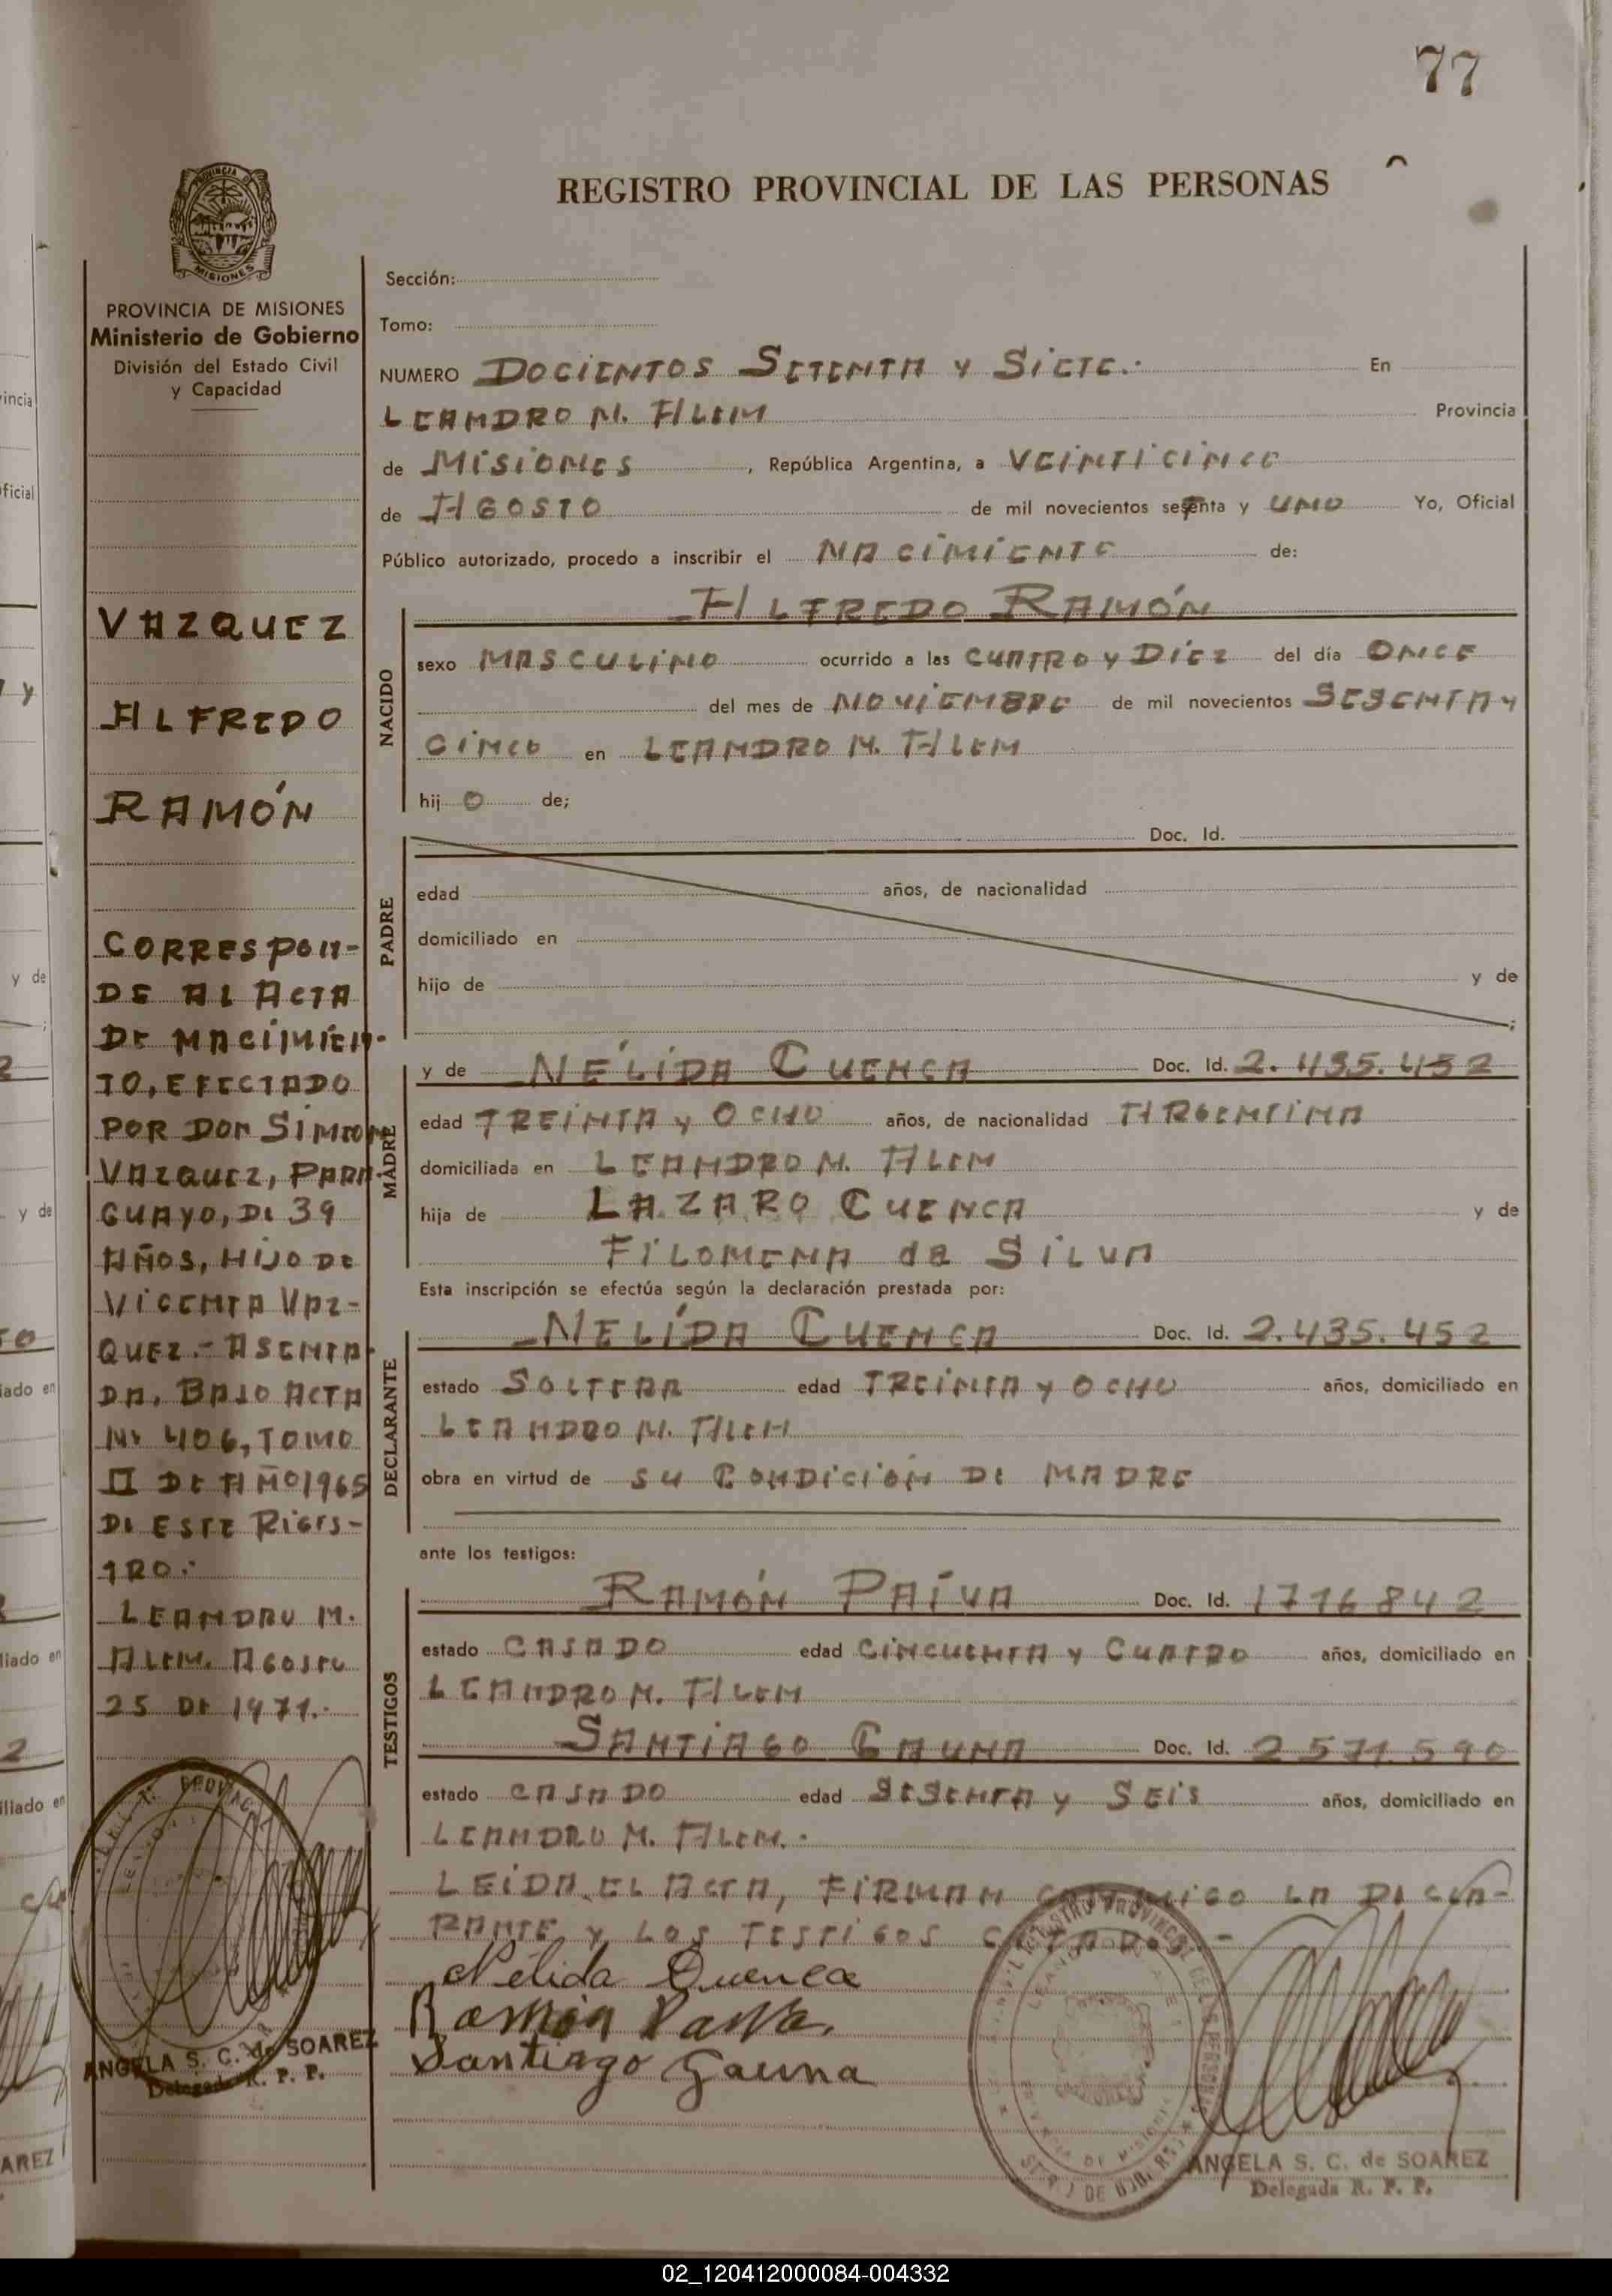 77
REGISTRO PROVINCIAL DE LAS PERSONAS
PROVINCIA DE MISIONES
Ministerio de Gobierno
División del Estado Civil
y Capacidad
VAZQUEZ
ALFREDO
RAMÓN
CORRESPON-
DE AL ACTA
DE NACIMIEN-
TO, EFECTADO
POR DON SIMEON
VAZQUEZ, PARA-
GUAYO, DE 39
AÑOS, HIJO DE
VICENTA VAZ-
QUEZ.- ASENTA-
DA, BAJO ACTA
Nº 406, TOMO
II DE AÑO 1965
DE ESTE REGIS-
TRO.-
LEANDRO N.
ALEM. AGOSTO
25 DE 1971.-
ANGELA S. C. de SOAREZ
Delegada R. P. P.
Sección:
Tomo:
NUMERO DOCIENTOS SETENTA Y SIETE.- En
LEANDRO N. ALEM Provincia
de MISIONES, República Argentina, a VEINTICINCO
de AGOSTO de mil novecientos setenta y UNO Yo, Oficial
Público autorizado, procedo a inscribir el NACIMIENTO de:
NACIDO
ALFREDO RAMÓN
sexo MASCULINO ocurrido a las CUATRO Y DIEZ del día ONCE
del mes de NOVIEMBRE de mil novecientos SESENTA Y
CINCO en LEANDRO N. ALEM
hij O de;
PADRE
Doc. Id.
edad años, de nacionalidad
domiciliado en
hijo de y de
;
MADRE
y de NÉLIDA CUENCA Doc. Id. 2.435.452
edad TREINTA Y OCHO años, de nacionalidad ARGENTINA
domiciliada en LEANDRO N. ALEM
hija de LAZARO CUENCA y de
FILOMENA da SILVA
Esta inscripción se efectúa según la declaración prestada por:
DECLARANTE
NELIDA CUENCA Doc. Id. 2.435.452
estado SOLTERA edad TREINTA Y OCHO años, domiciliado en
LEANDRO N. ALEM
obra en virtud de SU CONDICIÓN DE MADRE
ante los testigos:
TESTIGOS
RAMÓN PAIVA Doc. Id. 1716842
estado CASADO edad CINCUENTA Y CUATRO años, domiciliado en
LEANDRO N. ALEM
SANTIAGO GAUNA Doc. Id. 2.571.590
estado CASADO edad SESENTA Y SEIS años, domiciliado en
LEANDRO N. ALEM.-
LEIDA EL ACTA, FIRMAN CONMIGO LA DECLA-
RANTE Y LOS TESTIGOS CITADOS.-
Nélida Cuenca
Ramón Paiva
Santiago Gauna
ANGELA S. C. de SOAREZ
Delegada R. P. P.
02_120412000084-004332